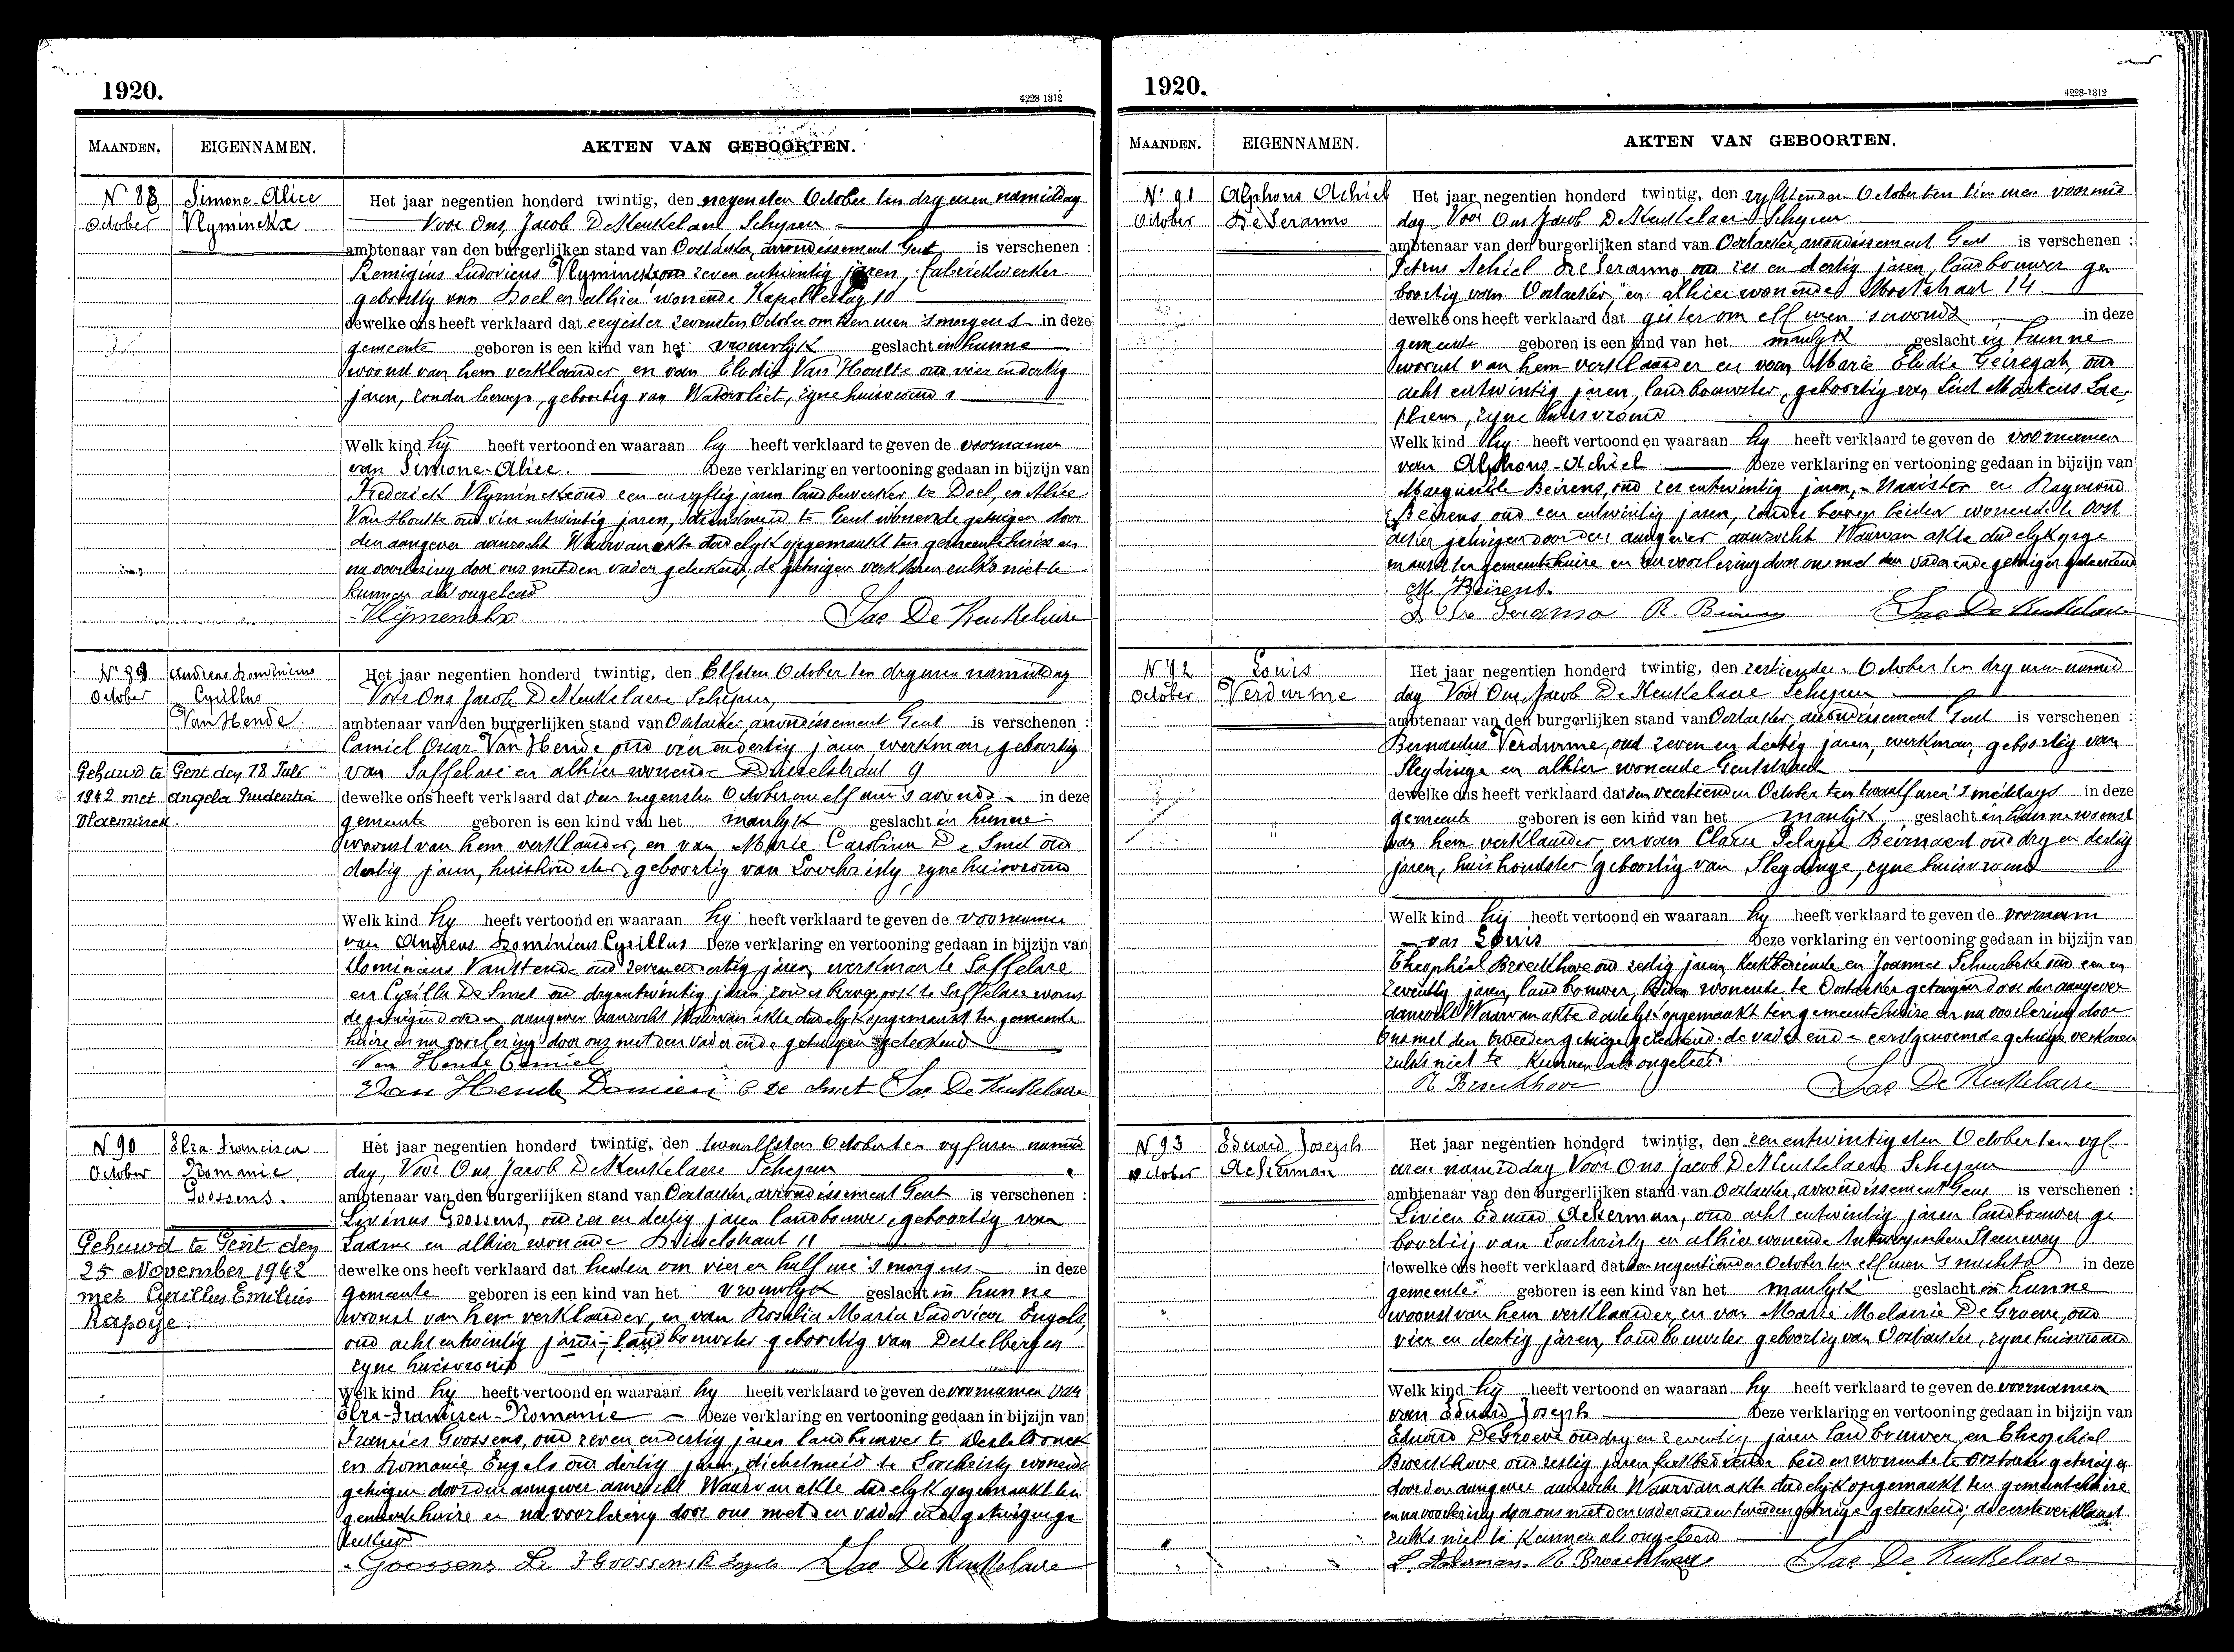 1920.
4228-1312
MAANDEN. EIGENNAMEN. AKTEN VAN GEBOORTEN.
N 88 Simone-Alice
October Vlyminckx
Het jaar negentien honderd twintig, den negensten October ten dry uren namiddag
Voor Ons, Jacob De Keukelaere Schepen
ambtenaar van den burgerlijken stand van Oostacker, arrondissement Gent is verschenen :
Remigius Ludovicus Vlyminckx oud zeven entwintig jaren, fabriekwerker
geboortig van Doel en alhier wonende Kapelleslag 10
dewelke ons heeft verklaard dat eergister zevensten October om tien uren 's morgens in deze
gemeente geboren is een kind van het vrouwlyk geslacht in hunne
woonst van hem verklaarder, en van Elodie Van Houtte oud vier endertig
jaren, zonder beroep, geboortig van Watervliet, zyne huisvrouw
Welk kind hij heeft vertoond en waaraan hy heeft verklaard te geven de voornamen
van Simone-Alice. Deze verklaring en vertooning gedaan in bijzijn van
Frederick Vlyminckx oud een en vyftig jaren landbewerker te Doel, en Alice
Van Houtte oud vier entwintig jaren, dienstmeid te Gent wonende getuigen door
den aangever aanzocht Waarvan akte dadelyk opgemaakt ten gemeentehuize en
na voorlezing door ons met den vader geteekend, de getuigen verklaren zulks niet te
kunnen als ongeleerd
Vlymenckx Jac De Keukelaere
N° 89 Andreas Dominicus
October Cyrillus
Van Hende
Gehuwd te Gent den 18 Juli
1942 met Angela Prudentia
Vlaeminck.
Het jaar negentien honderd twintig, den Elfsten October ten dry uren namiddag
Voor Ons Jacob De Keukelaere Schepen,
ambtenaar van den burgerlijken stand van Oostacker, arrondissement Gent is verschenen :
Camiel Oscar Van Hende oud vier endertig jaren werkman, geboortig
van Saffelare en alhier wonende Drieselstraat 9
dewelke ons heeft verklaard dat den negensten October om elf uren 's avonds in deze
gemeente geboren is een kind van het manlyk geslacht in hunne
woonst van hem verklaarder, en van Marie Carolina De Smet oud
dertig jaren, huishoudster, geboortig van Loochristy, zyne huisvrouw
Welk kind hy heeft vertoond en waaraan hy heeft verklaard te geven de voornamen
van Andreas Dominicus Cyrillus Deze verklaring en vertooning gedaan in bijzijn van
Dominicus Van Hende oud zeven endertig jaren, werkman te Saffelare
en Cyrilla De Smet oud dryentwintig jaren, zonder beroep, ook te Saffelare wonen
de getuigen door den aangever aanzocht Waarvan akte dadelyk opgemaakt ten gemeente
huize en na voorlezing door ons met den vader ende getuigen geteekend
Van Hende Camiel
Van Hende Damien C De Smet Jac De Keukelaere
N 90 Elza-Francisca
October Romanie
Goossens.
Gehuwd te Gent den
25 November 1942
met Cyrillus Emilius
Rapoye.
Het jaar negentien honderd twintig, den twaalfsten October ten vyf uren namid
dag, Voor Ons, Jacob De Keukelaere Schepen
ambtenaar van den burgerlijken stand van Oostacker, arrondissement Gent is verschenen :
Livinus Goossens, oud zes en dertig jaren landbouwer, geboortig van
Laarne en alhier wonende Drieselstraat 11
dewelke ons heeft verklaard dat heden om vier en half ure 's morgens in deze
gemeente geboren is een kind van het vrouwlyk geslacht in hunne
woonst van hem verklaarder, en van Rosalia Maria Ludovica Engels,
oud acht entwintig jaren, landbouwster geboortig van Destelbergen
zyne huisvrouw
Welk kind hy heeft vertoond en waaraan hy heeft verklaard te geven de voornamen van
Elza-Francisca-Romanie Deze verklaring en vertooning gedaan in bijzijn van
Francies Goossens, oud zeven endertig jaren landbouwer te Desteldonck
en Romanie Engels oud dertig jaren, dienstmeid te Loochristy wonende
getuigen door den aangever aanzocht Waarvan akte dadelyk opgemaakt ten
gemeentehuize en na voorlezing door ons met den vader ende getuigen ge
teekend
Goossens Li F Goossens R Engels Jac De Keukelaere
1920.
4228-1312
MAANDEN. EIGENNAMEN. AKTEN VAN GEBOORTEN.
N° 91 Alphons Achiel
October De Seranno
Het jaar negentien honderd twintig, den vyftienden October ten tien uren voormid
dag Voor Ons Jacob De Keukelaere Schepen
ambtenaar van den burgerlijken stand van Oostacker, arrondissement Gent is verschenen :
Petrus Achiel De Seranno, oud zes en dertig jaren, landbouwer ge
boortig van Oostacker, en alhier wonende 14
dewelke ons heeft verklaard dat gister om elf uren 's avonds in deze
gemeente geboren is een kind van het manlyk geslacht in hunne
woonst van hem verklaarder en van Marie Elodie Geiregat, oud
acht entwintig jaren, landbouwster, geboortig van Sint Martens Lae
them, zyne huisvrouw
Welk kind hy heeft vertoond en waaraan hy heeft verklaard te geven de voornamen
van Alphons-Achiel Deze verklaring en vertooning gedaan in bijzijn van
Marguerite Beirens, oud zes entwintig jaren, naaister en Raymond
Beirens oud een entwintig jaren, zonder beroep beiden wonende te Oost
acker getuigen door den aangever aanzocht Waarvan akte dadelyk opge
maakt ten gemeentehuize en na voorlezing door ons met den vader ende getuigen geteekend
M. Beirens.
De Seranno R. Beirens Jac De Keukelaere
N 92 Louis
October Verdurme
Het jaar negentien honderd twintig, den zestienden October ten dry uren namid
dag Voor Ons, Jacob De Keukelaere Schepen
ambtenaar van den burgerlijken stand van Oostacker, arrondissement Gent is verschenen :
Bernardus Verdurme, oud zeven en dertig jaren, werkman, geboortig van
Sleydinge en alhier wonende Gentstraat
dewelke ons heeft verklaard dat den veertienden October ten twaalf uren 's middags in deze
gemeente geboren is een kind van het manlyk geslacht in hunne woonst
van hem verklaarder en van Clara Pelagie Beirnaert oud dry en dertig
jaren, huishoudster geboortig van Sleydinge, zyne huisvrouw
Welk kind hij heeft vertoond en waaraan hy heeft verklaard te geven de voornaam
van Louis Deze verklaring en vertooning gedaan in bijzijn van
Theophiel Broeckhove oud zestig jaren, kerkbediende en Joannes Scheerbeke oud een en
zeventig jaren, landbouwer, beiden wonende te Oostacker getuigen door den aangever
aanzocht Waarvan akte dadelyk opgemaakt ten gemeentehuize en na voorlezing door
ons met den tweeden getuige geteekend. de vader ende eerstgenoemde getuige verklaren
zulks niet te kunnen als ongeleerd
Broeckhove Jac De Keukelaere
N 93 Eduard Joseph
October Ackerman
Het jaar negentien honderd twintig, den een entwintigsten October ten vyf
uren namiddag Voor Ons Jacob De Keukelaere Schepen
ambtenaar van den burgerlijken stand van Oostacker, arrondissement Gent is verschenen :
Livien Eduard Ackerman, oud acht entwintig jaren landbouwer ge
boortig van Loochristy en alhier wonende Antwerpschen Steenweg
dewelke ons heeft verklaard dat den negentienden October ten elf uren 's nachts in deze
gemeente geboren is een kind van het manlyk geslacht in hunne
woonst van hem verklaarder en van Marie Melanie De Groeve, oud
vier en dertig jaren, landbouwster geboortig van Oostacker, zyne huisvrouw
Welk kind hij heeft vertoond en waaraan hy heeft verklaard te geven de voornamen
van Eduard Joseph Deze verklaring en vertooning gedaan in bijzijn van
Eduard De Groeve oud dry en zeventig jaren landbouwer, en Theophiel
Broeckhove oud zestig jaren kerkbediende beiden wonende te Oostacker getuigen
door den aangever aanzocht Waarvan akte dadelyk opgemaakt ten gemeentehuize
en na voorlezing door ons met den vader ende tweeden getuige geteekend, de eerste verklaart
zulks niet te kunnen als ongeleerd
L. Ackerman. Broeckhove Jac De Keukelaere